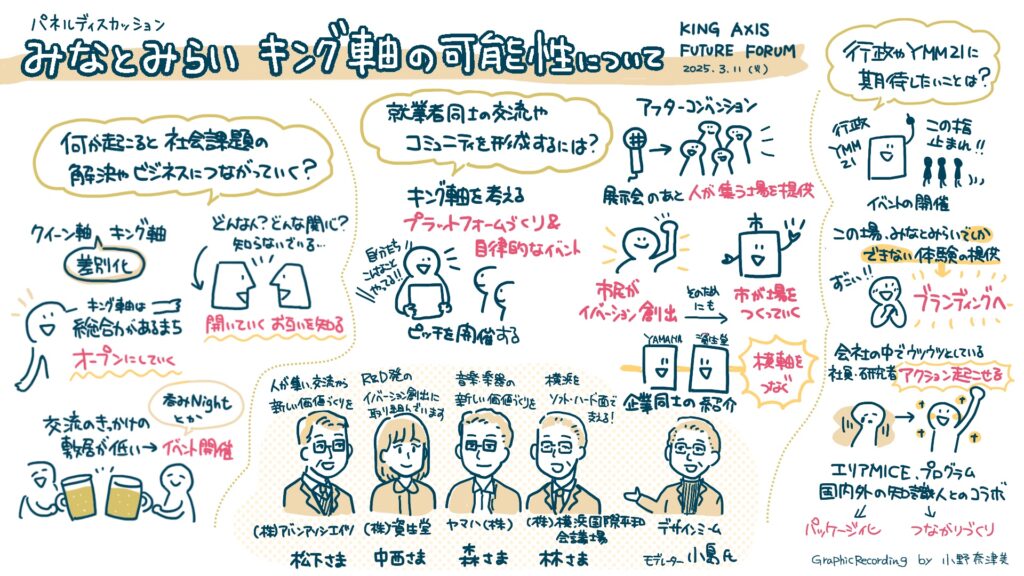 パネルディスカッション
みなとみらい キング軸の可能性について
KING AXIS
FUTURE FORUM
2025.3.11(火)
何が起こると社会課題の
解決やビジネスにつながっていく?
クイーン軸 キング軸
差別化
キング軸は
総合力があるまち
オープンにしていく
どんなん?どんな関心?
知らないでいる…
開いていく お互いを知る
呑みNight
とか
交流のきっかけの
敷居が低い→イベント開催
就業者同士の交流や
コミュニティを形成するには?
キング軸を考える
プラットフォームづくり&
自律的なイベント
自分たち
こんなこと
やってる!!
ピッチを開催する
アフターコンベンション
展示会のあと 人が集う場を提供
市民が
イノベーション創出
そのため
にも
市
市が場を
つくっていく
YAMAHA
資生堂
企業同士の紹介
横軸を
つなぐ
人が集い、交流から
新しい価値づくりを
(株)アバンアソシエイツ
松下さま
R&D発の
イノベーション創出に
取り組んでいます
(株)資生堂
中西さま
音楽・楽器の
新しい価値づくりを
ヤマハ(株)
森さま
横浜を
ソフト・ハード面で
支える!
(株)横浜国際平和
会議場
林さま
デザインミーム
モデレーター 小島氏
行政やYMM21に
期待したいことは?
行政
YMM
21
この指
止まれ!!
イベントの開催
この場、みなとみらいでしか
できない体験の提供
すごい!!
ブランディングへ
会社の中でウツウツとしている
社員・研究者 アクション起こせる
エリアMICE、プログラム
国内外の知識人とのコラボ
パッケージ化
つながりづくり
GraphicRecording by 小野奈津美